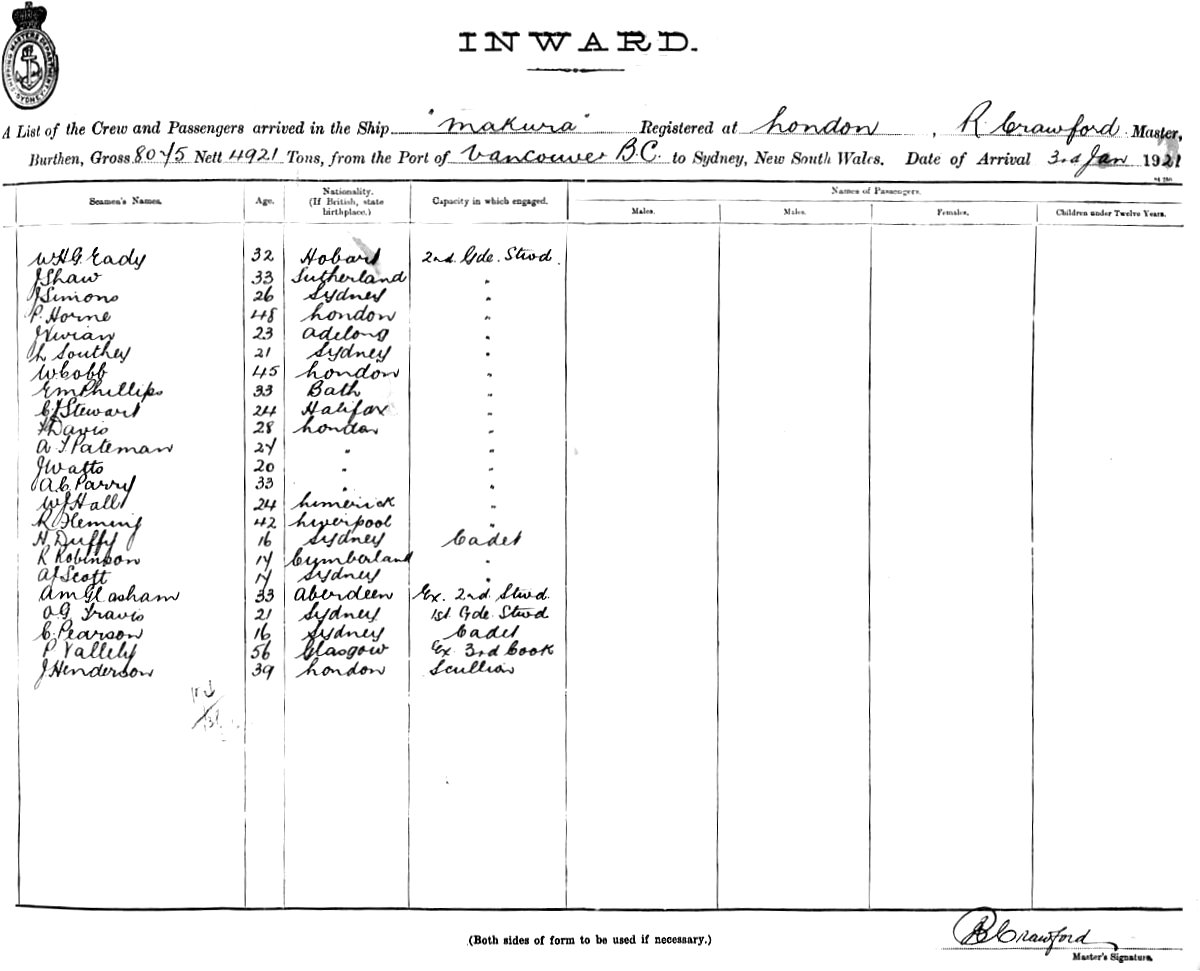 SHIPPING MASTERS DEPARTMENT SYDNEY
INWARD.
A List of the Crew and Passengers arrived in the Ship "Makura" Registered at London, R. Crawford Master,
Burthen, Gross 8075 Nett 4921 Tons, from the Port of Vancouver B.C. to Sydney, New South Wales. Date of Arrival 3rd Jan 1921
Names of Passengers.
Seamen's Names. Age. Nationality. (If British, state birthplace.) Capacity in which engaged. Males. Males. Females. Children under Twelve Years.
W H G Eady 32 Hobart 2nd Gde. Stwd.
J Shaw 33 Sutherland "
J Simons 26 Sydney "
P. Horne 48 London "
J Vivian 23 Adelong "
L Southey 21 Sydney "
W Cobb 45 London "
E M Phillips 33 Bath "
C J Stewart 24 Halifax "
F Davis 28 London "
A T Pateman 27 " "
J Watts 20 " "
A. C. Parry 33 " "
W J Hall 24 Limerick "
R Fleming 42 Liverpool "
H. Duffy 16 Sydney Cadet
R Robinson 17 Cumberland "
A J Scott 17 Sydney "
A M Glasham 33 Aberdeen Ex. 2nd. Stwd.
O G Travis 21 Sydney 1st. Gde Stwd
C. Pearson 16 Sydney Cadet
P Vallely 56 Glasgow Ex 3rd Cook
J Henderson 39 London Scullion
(Both sides of form to be used if necessary.)
R Crawford
Master's Signature.